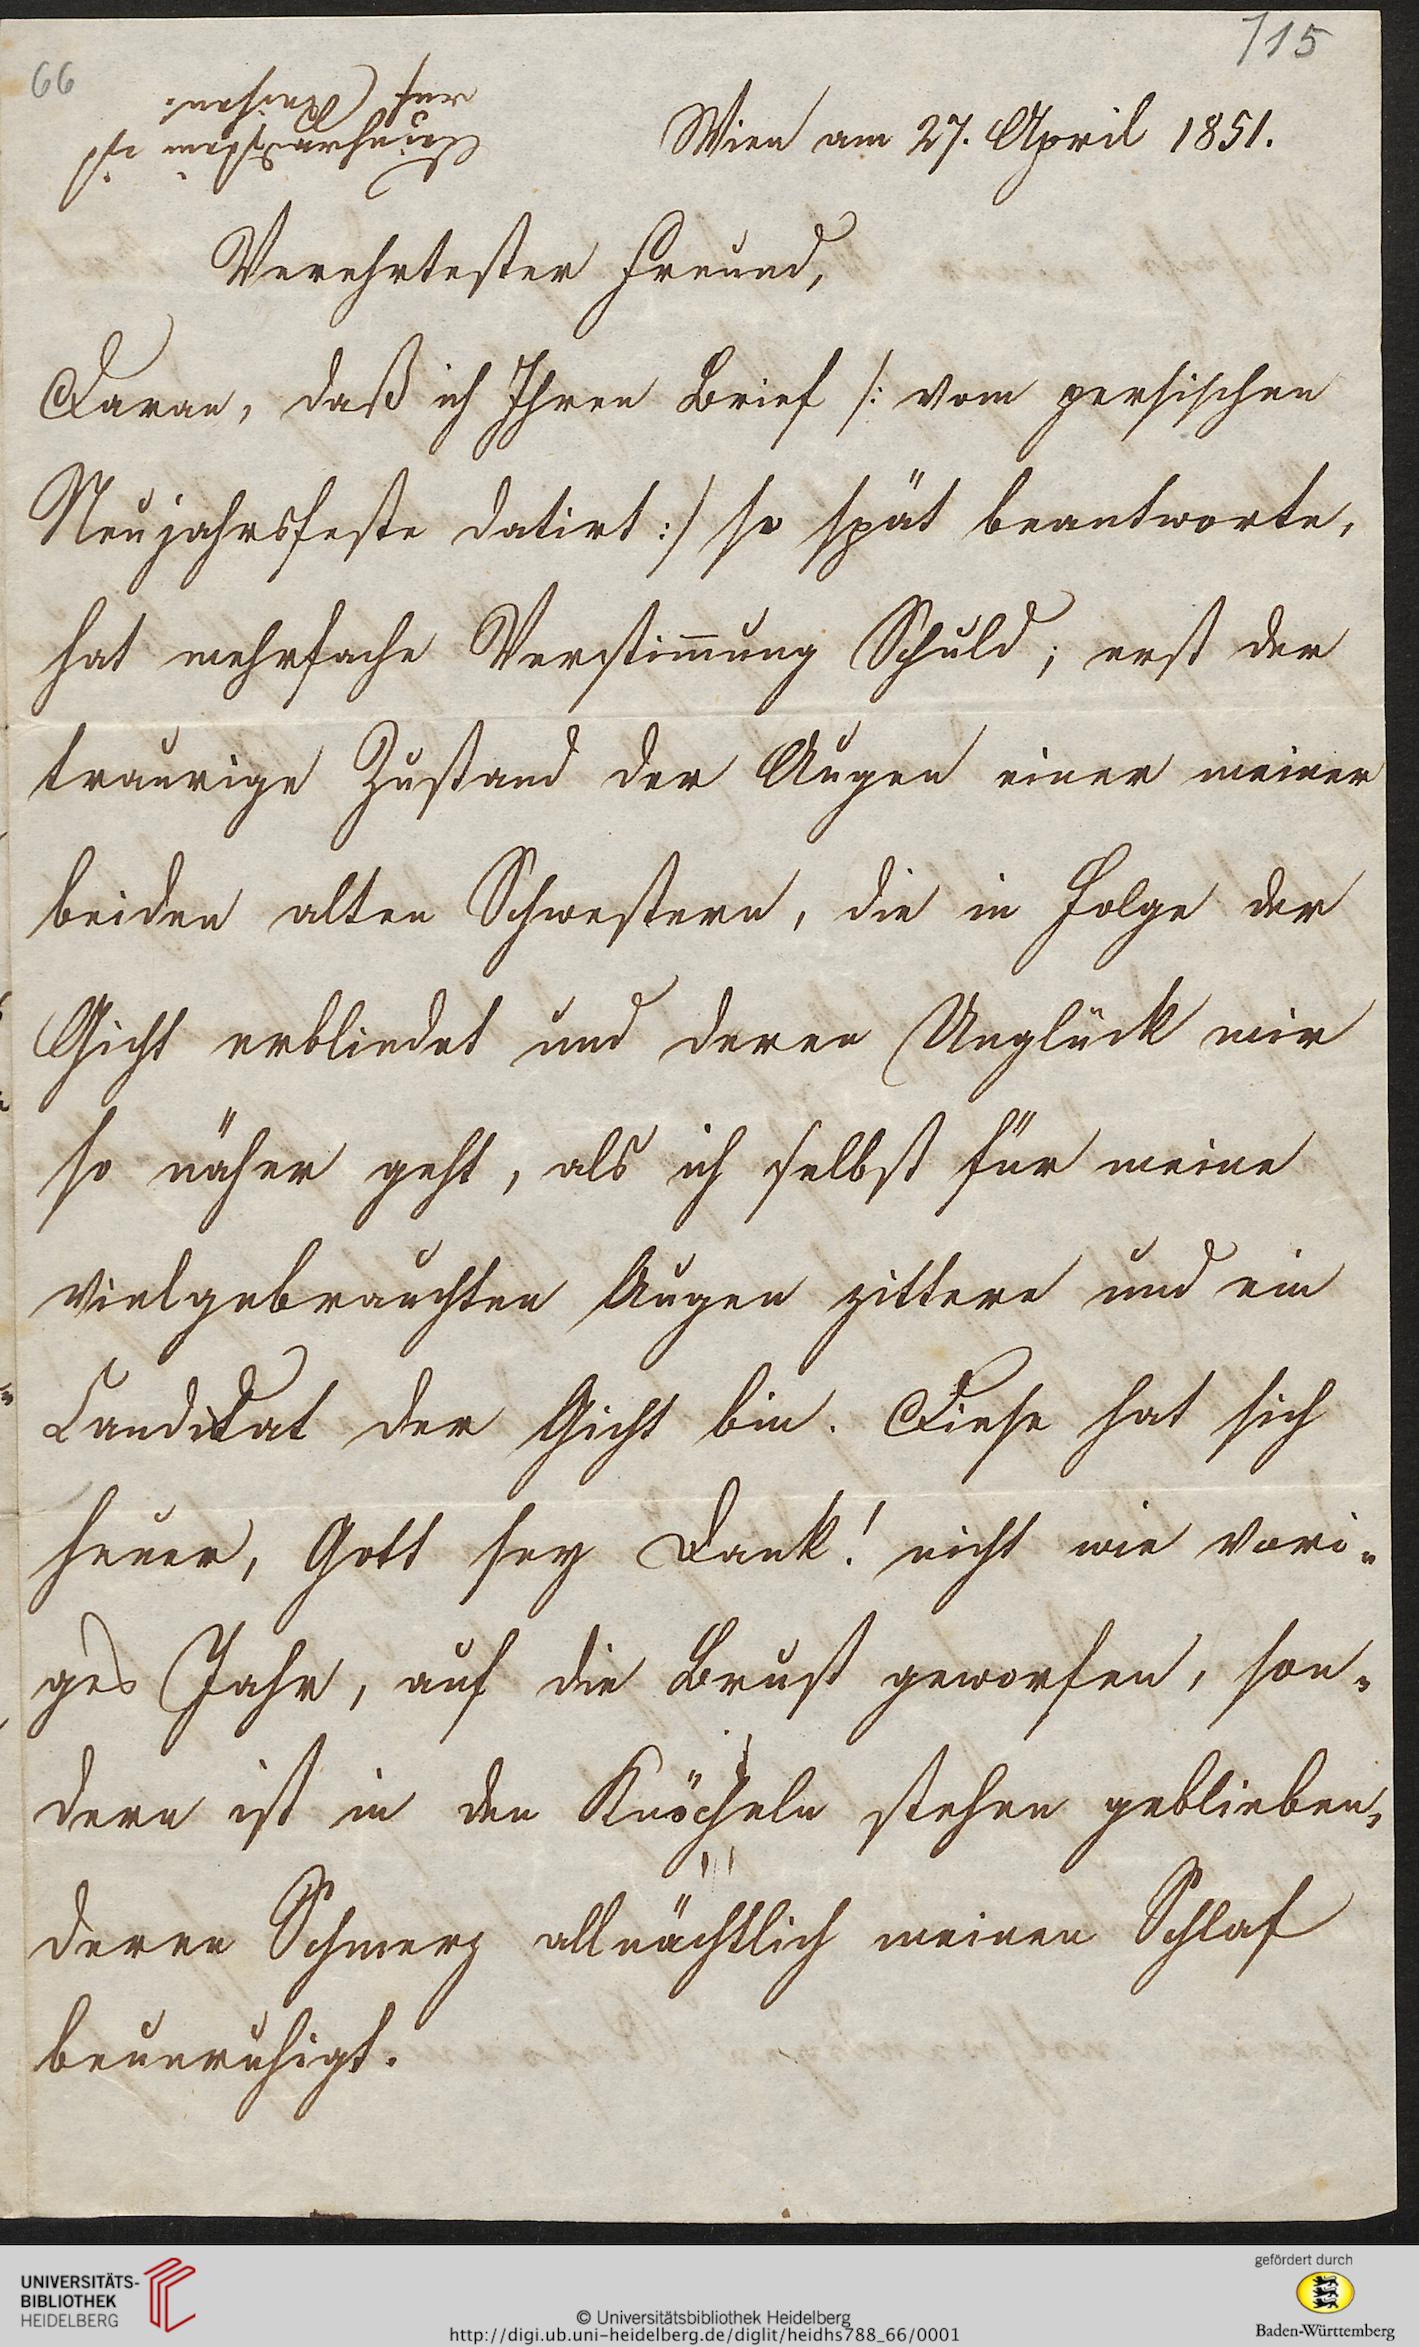 66
115
Wien am 27. April 1851.
Verehrtester Freund,
Daran, daß ich Ihren Brief /: vom persischen
Neujahrsfeste datirt :/ so spät beantworte,
hat mehrfache Verstim̅ung Schuld; erst der
traurige Zustand der Augen einer meiner
beiden alten Schwestern, die in Folge der
Gicht erblindet und deren Unglück mir
so näher geht, als ich selbst für meine
vielgebrauchten Augen zittere und ein
Candidat der Gicht bin. Diese hat sich
heuer, Gott sey Dank! nicht wie vori-
ges Jahr, auf die Brust geworfen, son-
dern ist in den Knöcheln stehen geblieben,
deren Schmerz allnächtlich meinen Schlaf
beunruhigt.
UNIVERSITÄTS-
BIBLIOTHEK
HEIDELBERG
© Universitätsbibliothek Heidelberg
http://digi.ub.uni-heidelberg.de/diglit/heidhs788_66/0001
gefördert durch
Baden-Württemberg